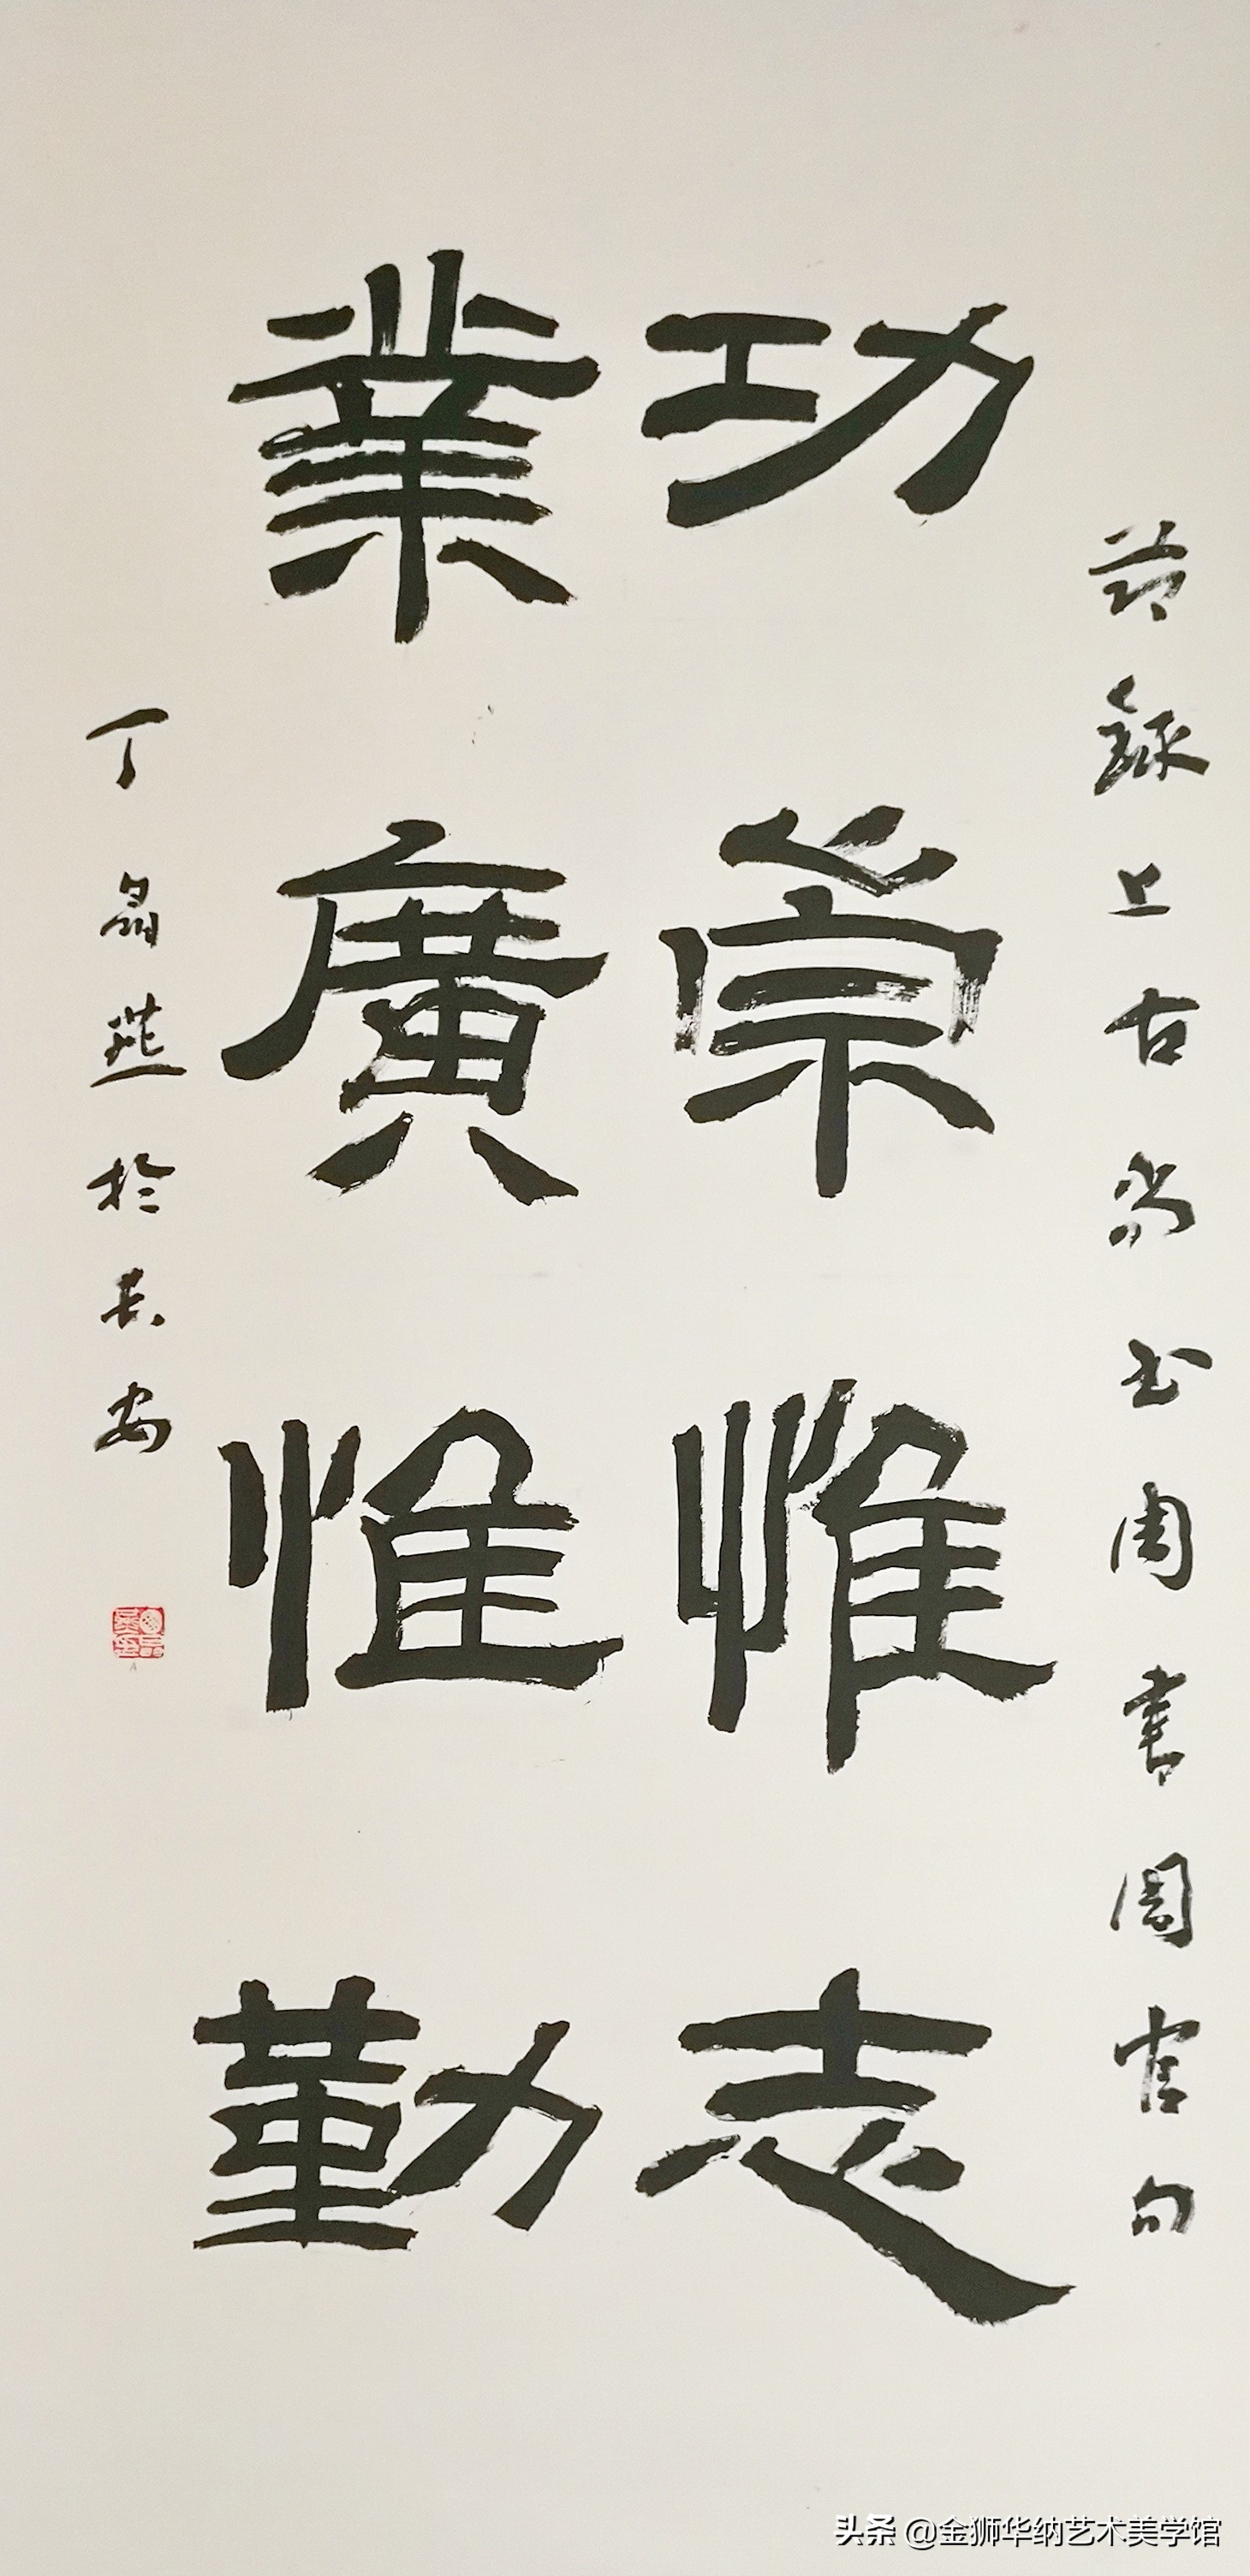 節錄上古尚书周書周官句
功崇惟志
業廣惟勤
丁晶燕於长安
头条 @金狮华纳艺术美学馆